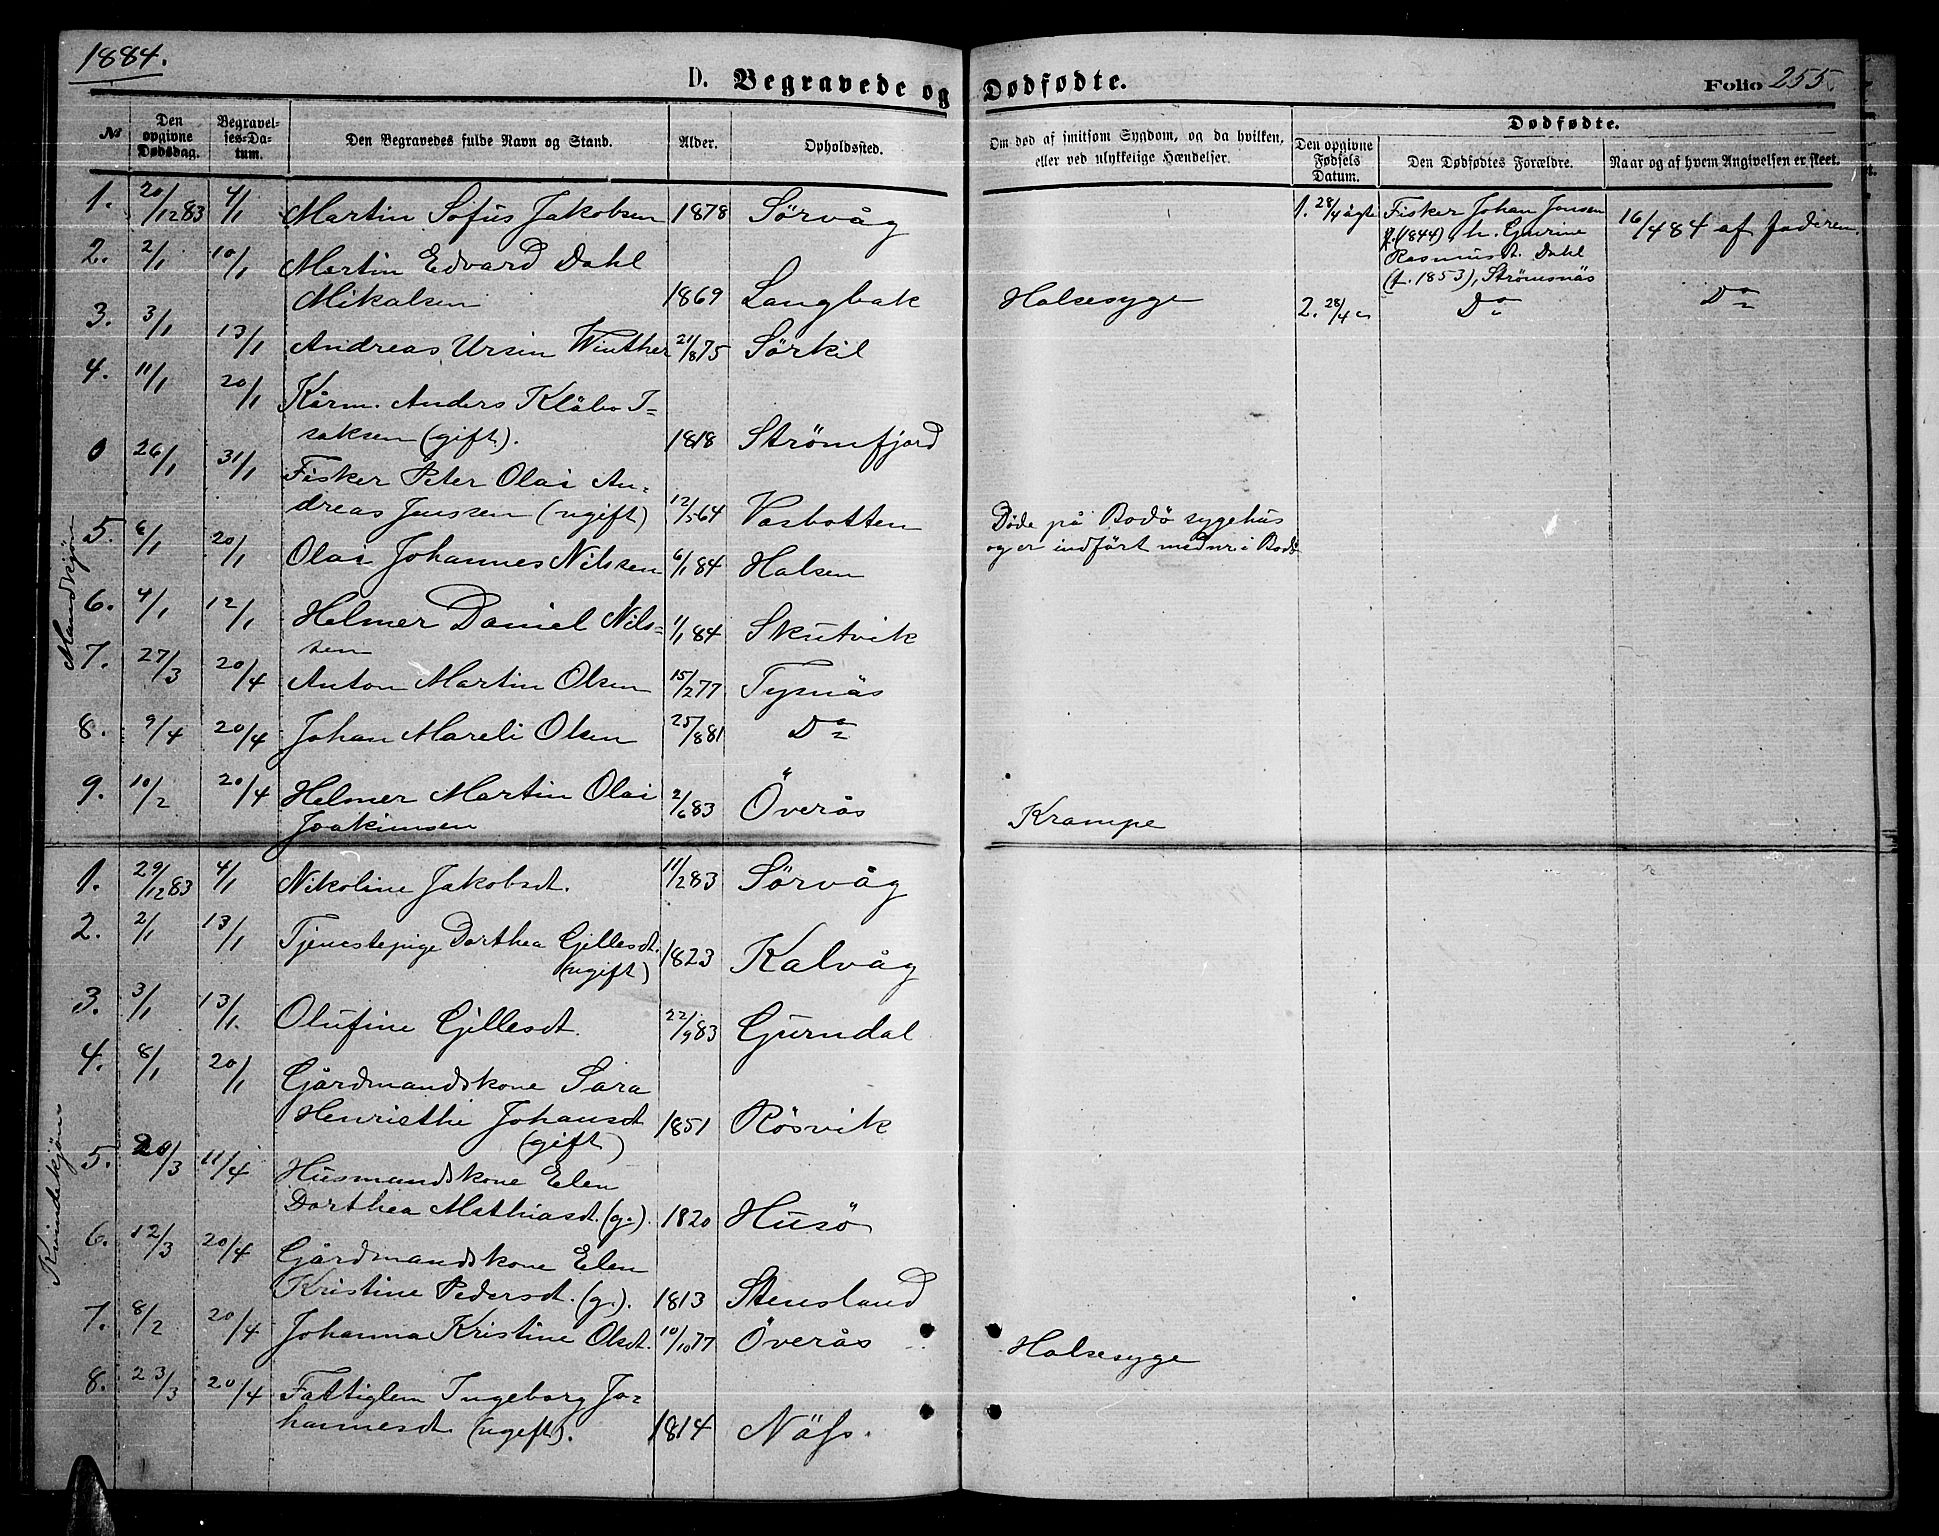 1884.
D. Begravede og Dødfødte.
Folio 255
№ Den opgivne Dødsdag. Begravelses-Datum. Den Begravedes fulde Navn og Stand. Alder. Opholdssted. Om død af smitsom Sygdom, og da hvilken, eller ved ulykkelige Hændelser. Dødfødte.
Den opgivne Fødsels Datum. Den Dødfødtes Forældre. Naar og af hvem Angivelsen er skeet.
Mandkjön
1. 20/12 83 4/1 Martin Sofus Jakobsen 1878 Sörvåg
1. 28/4 ägte Fisker Johan Jensen 16/4 84 af faderen.
f. (1844), h. Gurine
Rasmusdt. Dahl
(f. 1853), Strömsnäs
2. 2/1 10/1 Martin Edvard Dahl
Mikalsen 1869 Langbak Halsesyge
2. 28/4 " Do Do
3. 3/1 13/1 Andreas Ursin Winther 21/8 75 Sörkil
4. 11/1 20/1 Kårm. Anders Kläbo I-
saksen (gift). 1818 Strömfjord
0 26/1 31/1 Fisker Peter Olai An-
dreas Jenssen (ugift) 12/5 64 Vasbotten Döde på Bodö sygehus
og er indfört med nr. i Bodö
5. 6/1 20/1 Olai Johannes Nilssen 6/1 84 Halsen
6. 4/1 12/1 Helmer Daniel Nils-
sen 1/1 84 Skutvik
7. 27/3 20/4 Anton Martin Olsen 15/2 77 Tysnäs
8. 9/4 20/4 Johan Mareli Olsen 25/8 81 Do
9. 10/2 20/4 Helmer Martin Olai
Joakimsen 2/6 83 Överås Krampe
Kvindekjön
1. 29/12 83 4/1 Nikoline Jakobsdt. 11/2 83 Sörvåg
2. 2/1 13/1 Tjenestepige Dorthea Gjillesdt.
(ugift) 1823 Kalvåg
3. 3/1 13/1. Olufine Gjillesdt. 22/9 83 Gjurndal
4. 8/1 20/1 Gjårdmandskone Sara
Henriethe Johansdt
(gift) 1851 Rösvik
5. 20/3 11/4 Husmandskone Elen
Dorthea Mathiasdt. (g.). 1820 Husö
6. 12/3 20/4 Gjårdmandskone Elen
Kristine Pedersdt. (g.). 1813 Stensland
7. 8/2 20/4 Johanna Kristine Olsdt. 10/10 77 Överås Halsesyge
8. 23/3 20/4 Fattiglem Ingeborg Jo-
hannesdt (ugift). 1814 Näfs.